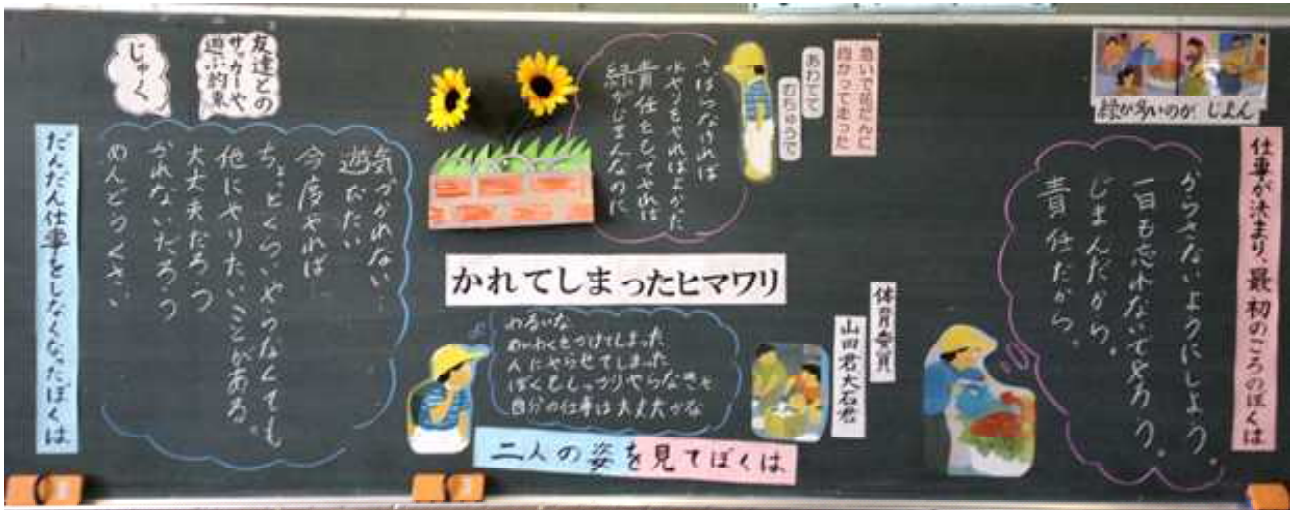 仕事が決まり、最初のころのぼくは
からさないようにしよう。
一日も忘れないでやろう。
じまんだから。
責任だから。
体育委員
山田君大石君
急いで花だんに
向かって走った
あわてて
むちゅうで
さぼらなければ
水やりをやればよかった
責任をもってやれば
かれてしまったヒマワリ
わるいな
めいわくをかけてしまった
人にやらせてしまった
ぼくもしっかりやらなきゃ
自分の仕事は大丈夫かな
二人の姿を見てぼくは
友達との
サッカーや
遊ぶ約束
じゅく
気づかれない…
遊びたい
今度やれば
ちょっとくらいやらなくても
他にやりたいことがある。
大丈夫だろう
かれないだろう
めんどうくさい
だんだん仕事をしなくなったぼくは